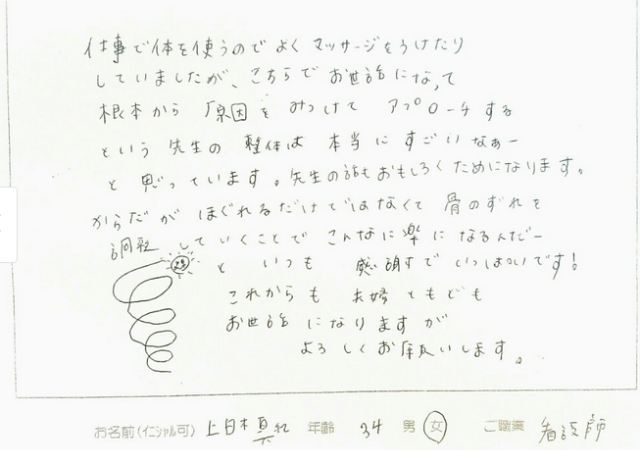 仕事で体を使うのでよくマッサージをうけたり
していましたが、こちらでお世話になって
根本から原因をみつけてアプローチする
という先生の整体は本当にすごいなぁー
と思っています。先生の話もおもしろくためになります。
からだがほぐれるだけではなくて骨のずれを
調整していくことでこんなに楽になるんだー
といつも感謝でいっぱいです！
これからも夫婦ともども
お世話になりますが
よろしくお願いします。
お名前(イニシャル可) 上日木真 年齢 34 男 女 ご職業 看護師